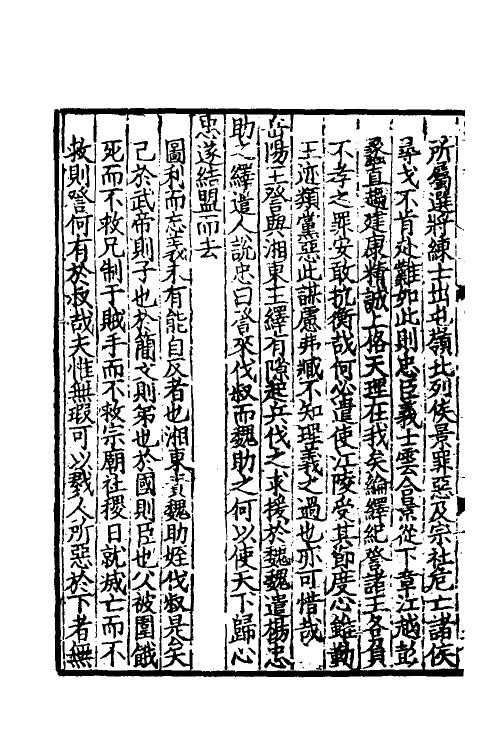 所屬選將練士出屯嶺北列侯景罪惡及宗社危亡諸侯
尋戈不肯赴難如此則忠臣義士雲合景從下章江越彭
蠡直趨建康精誠上格天理在我矣綸繹紀詧諸王各負
不孝之罪安敢抗衡哉何必遣使江陵受其節度心雖勤
王迹類黨惡此謀慮弗臧不知理義之過也亦可惜哉
岳陽王詧與湘東王繹有隙起兵伐之求援於魏魏遣楊忠
助之繹遣人說忠曰詧來伐叔而魏助之何以使天下歸心
忠遂結盟而去
圖利而忘義未有能自反者也湘東責魏助姪伐叔是矣
己於武帝則子也於簡文則弟也於國則臣也父被圍餓
死而不救兄制于賊手而不救宗廟社稷日就滅亡而不
救則詧何有於叔哉夫惟無瑕可以戮人所惡於下者無